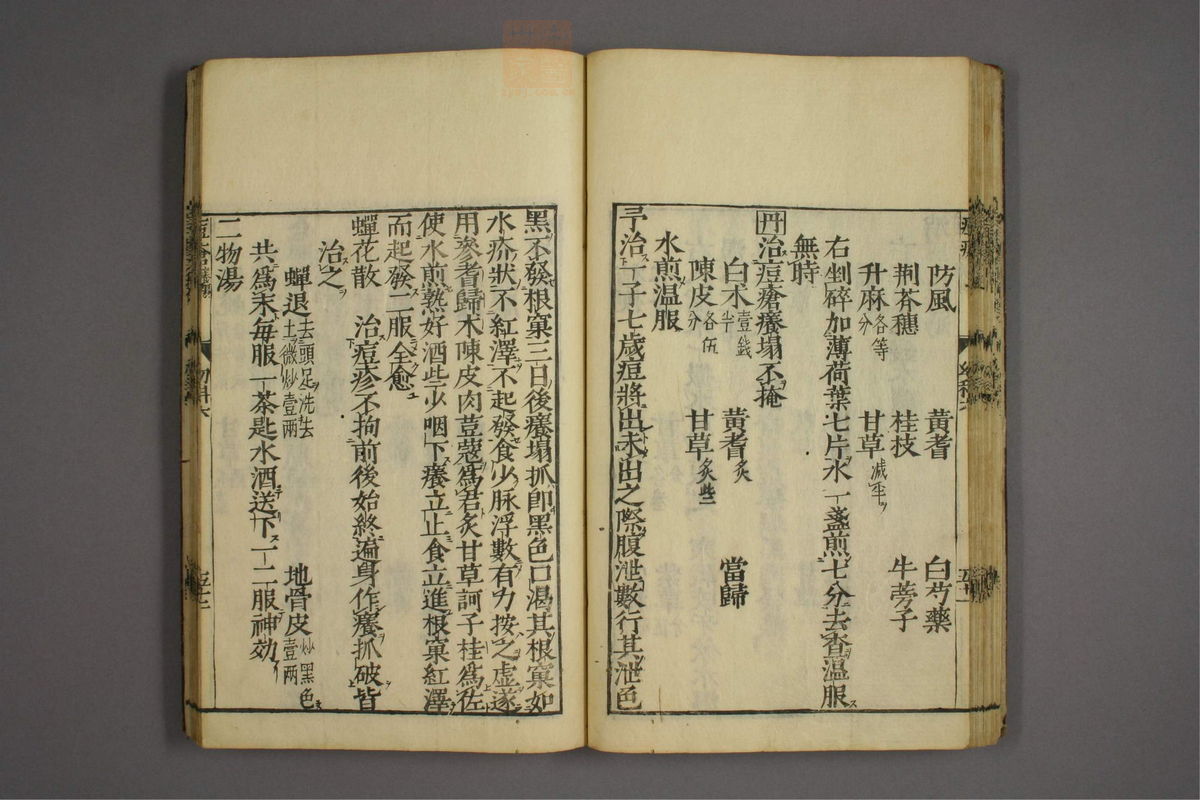 防風 黃耆 白芍藥
荆芥穗 桂枝 牛蒡子
升麻各等分 甘草減半
右剉碎加薄荷葉七片水一盞煎七分去查温服
無時
丹治痘瘡癢塌不掩
白朮壹錢半 黃耆炙 當歸
陳皮各伍分 甘草炙些
水煎温服
予治一子七歲痘將出未出之際腹泄數行其泄色
黑不發根窠三日後癢塌抓即黑色口渴其根窠如
水疥狀不紅澤不起發食少脉浮數有力按之虛遂
用參耆歸朮陳皮肉荳蔻爲君炙甘草訶子桂爲佐
使水煎熟好酒些少咽下癢立止食立進根窠紅澤
而起發二服全愈
蟬花散 治痘疹不拘前後始終遍身作癢抓破皆
治之
蟬退去頭足洗去土微炒壹兩 地骨皮炒黑色壹兩
共爲末每服一茶匙水酒送下一二服神効
二物湯